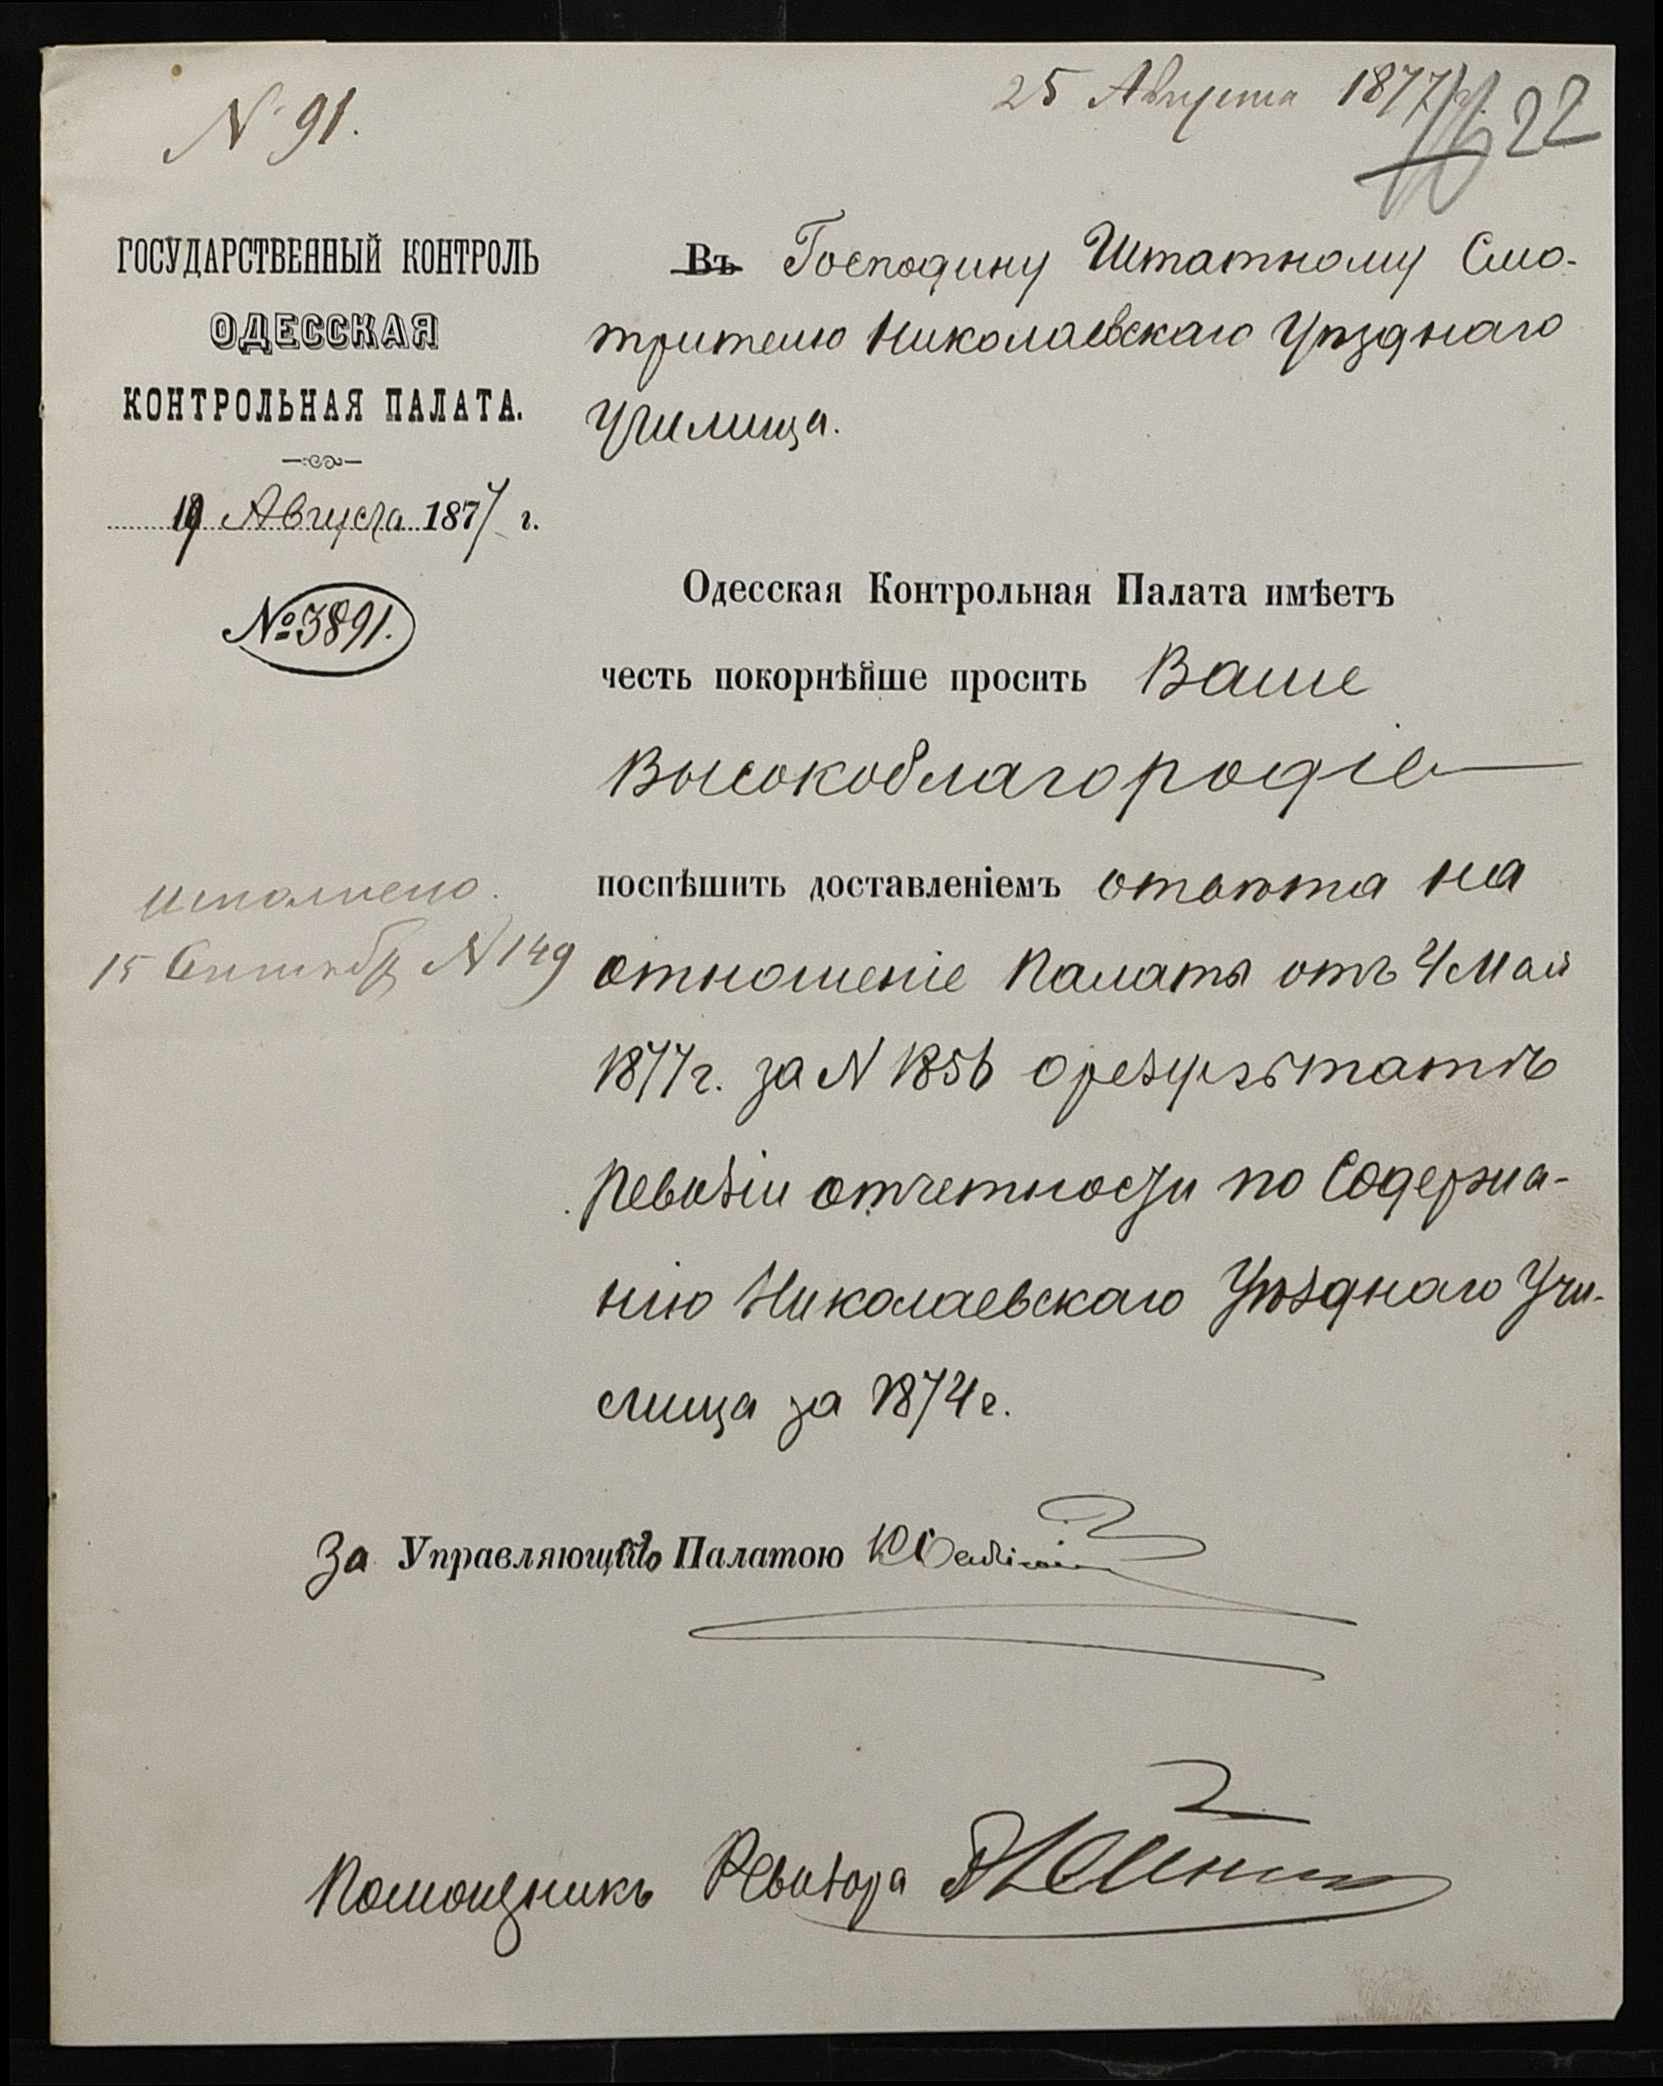 N 91.
25 Августа 1877 г.
22
ГОСУДАРСТВЕННЫЙ КОНТРОЛЬ
ОДЕССКАЯ
КОНТРОЛЬНАЯ ПАЛАТА.
19 Августа 1877 г.
№ 3891.
Въ Господину Штатному Смо-
трителю Николаевскаго Уѣзднаго
Училища.
Одесская Контрольная Палата имѣетъ
честь покорнѣйше просить Ваше
Высокоблагородіе
поспѣшить доставленіемъ отвѣта на
отношеніе Палаты отъ 4 Мая
1877 г. за N 1856 о результатѣ
Ревизіи отчетности по Содержа-
нію Николаевскаго Уѣзднаго Учи-
лища за 1874 г.
Исполнено.
15 Сентября N 149
За Управляющаго Палатою
Помощникъ Ревизора